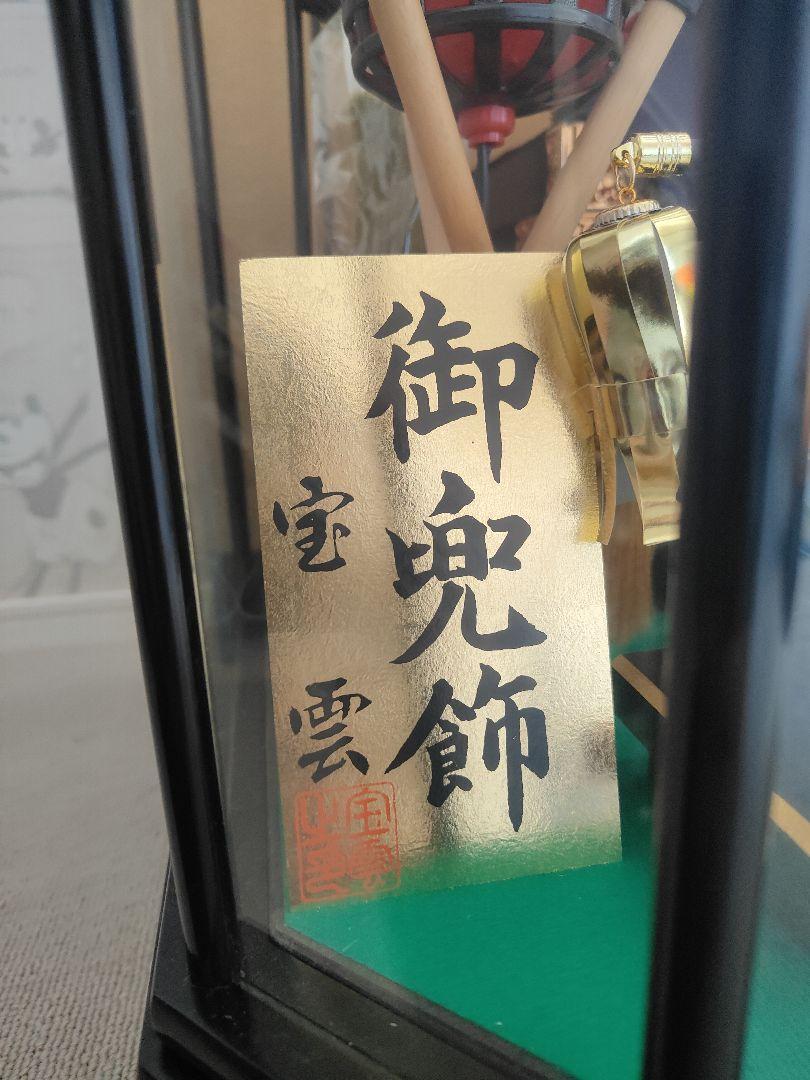 御兜飾
宝雲